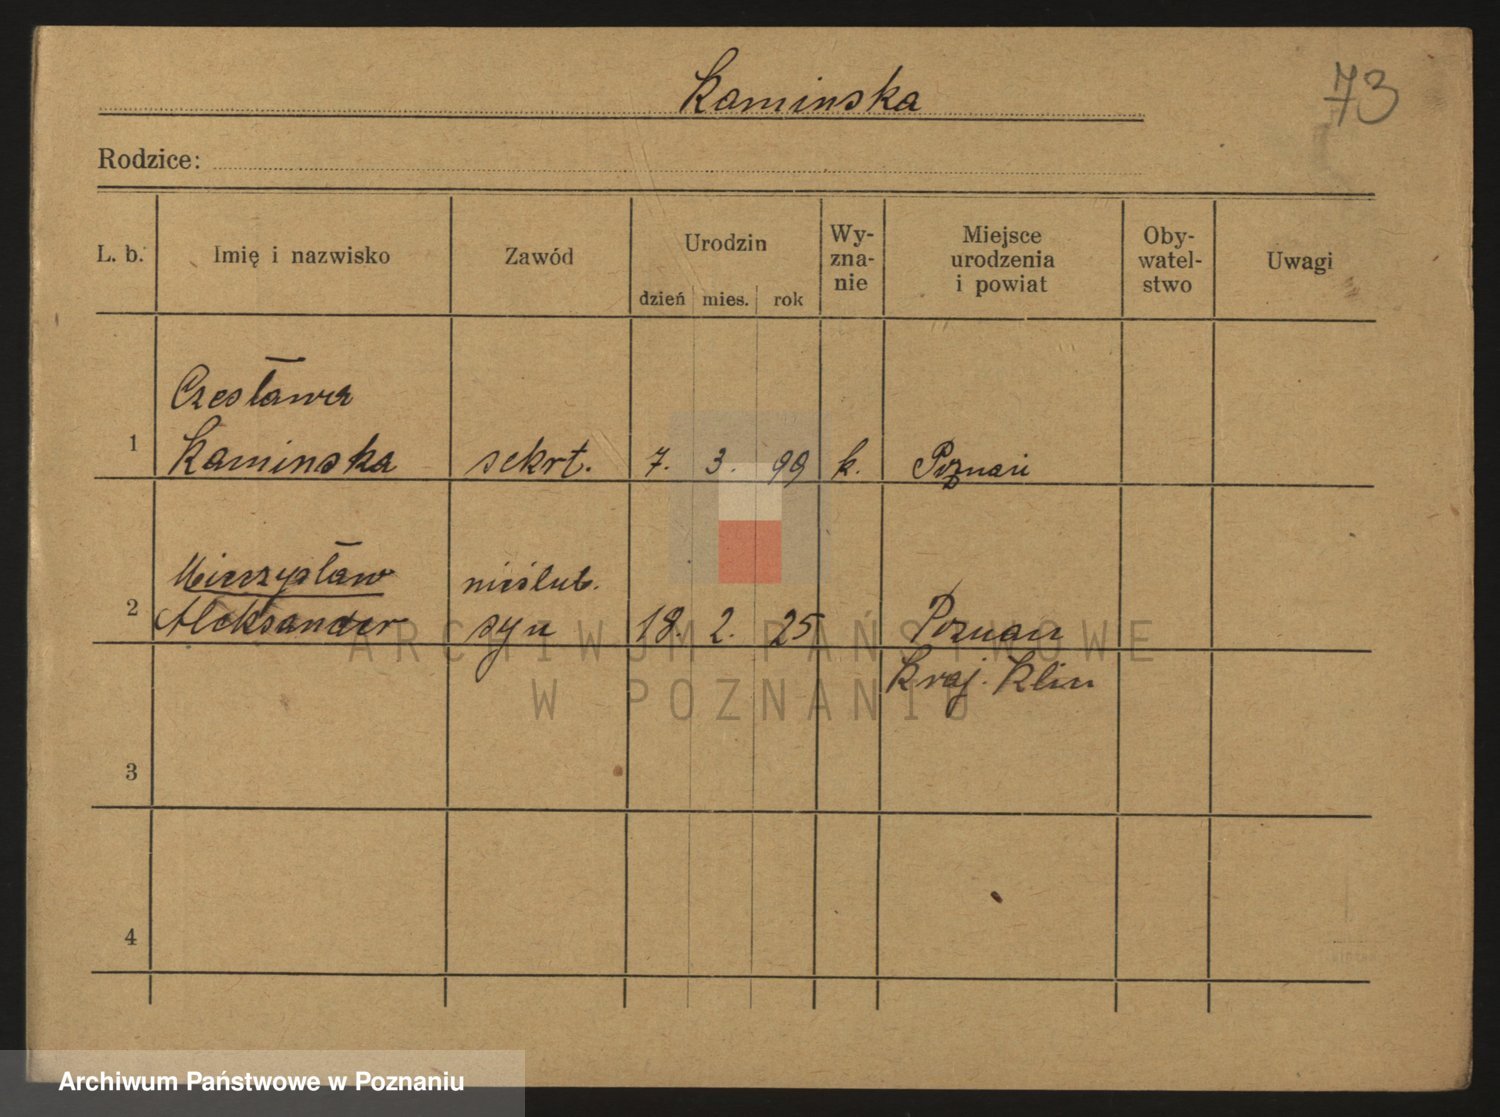 Kaminska
73
Rodzice:
L. b. Imię i nazwisko Zawód Urodzin dzień mies. rok Wy-zna-nie Miejsce urodzenia i powiat Oby-watel-stwo Uwagi
Czesława
1 Kaminska sekrt. 7. 3. 99 k. Poznań
Mieczysław nieślub.
2 Aleksander syn 18. 2. 25 Poznan
Kraj. Klin
3
4
ARCHIWUM PAŃSTWOWE
W POZNANIU
Archiwum Państwowe w Poznaniu